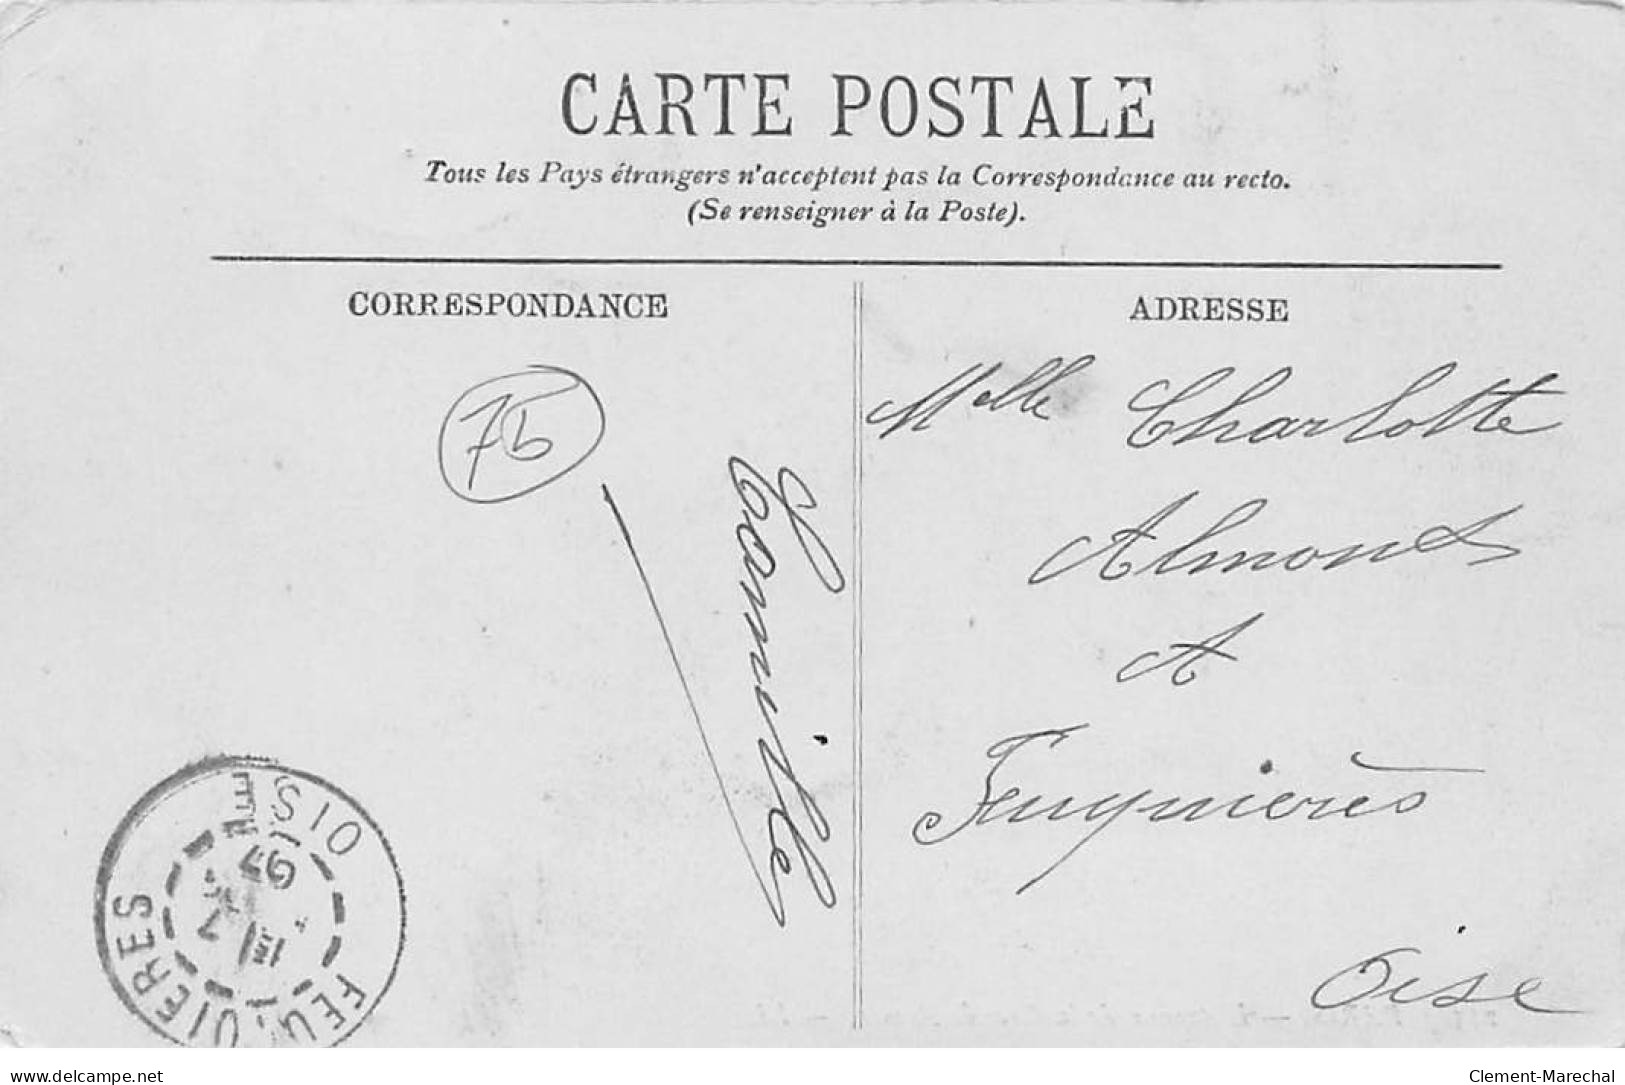 CARTE POSTALE
Tous les Pays étrangers n'acceptent pas la Correspondance au recto.
(Se renseigner à la Poste).
CORRESPONDANCE
ADRESSE
75
Camille
Melle Charlotte
Almont
A
Feuquières
Oise
OISE
07
FEUQUIERES
www.delcampe.net
Clement-Marechal